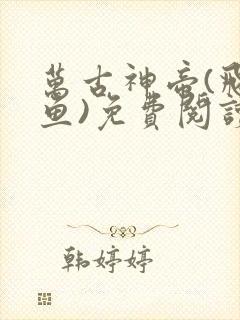 萬古神帝(飛
魚)免費閱讀
韩婷婷